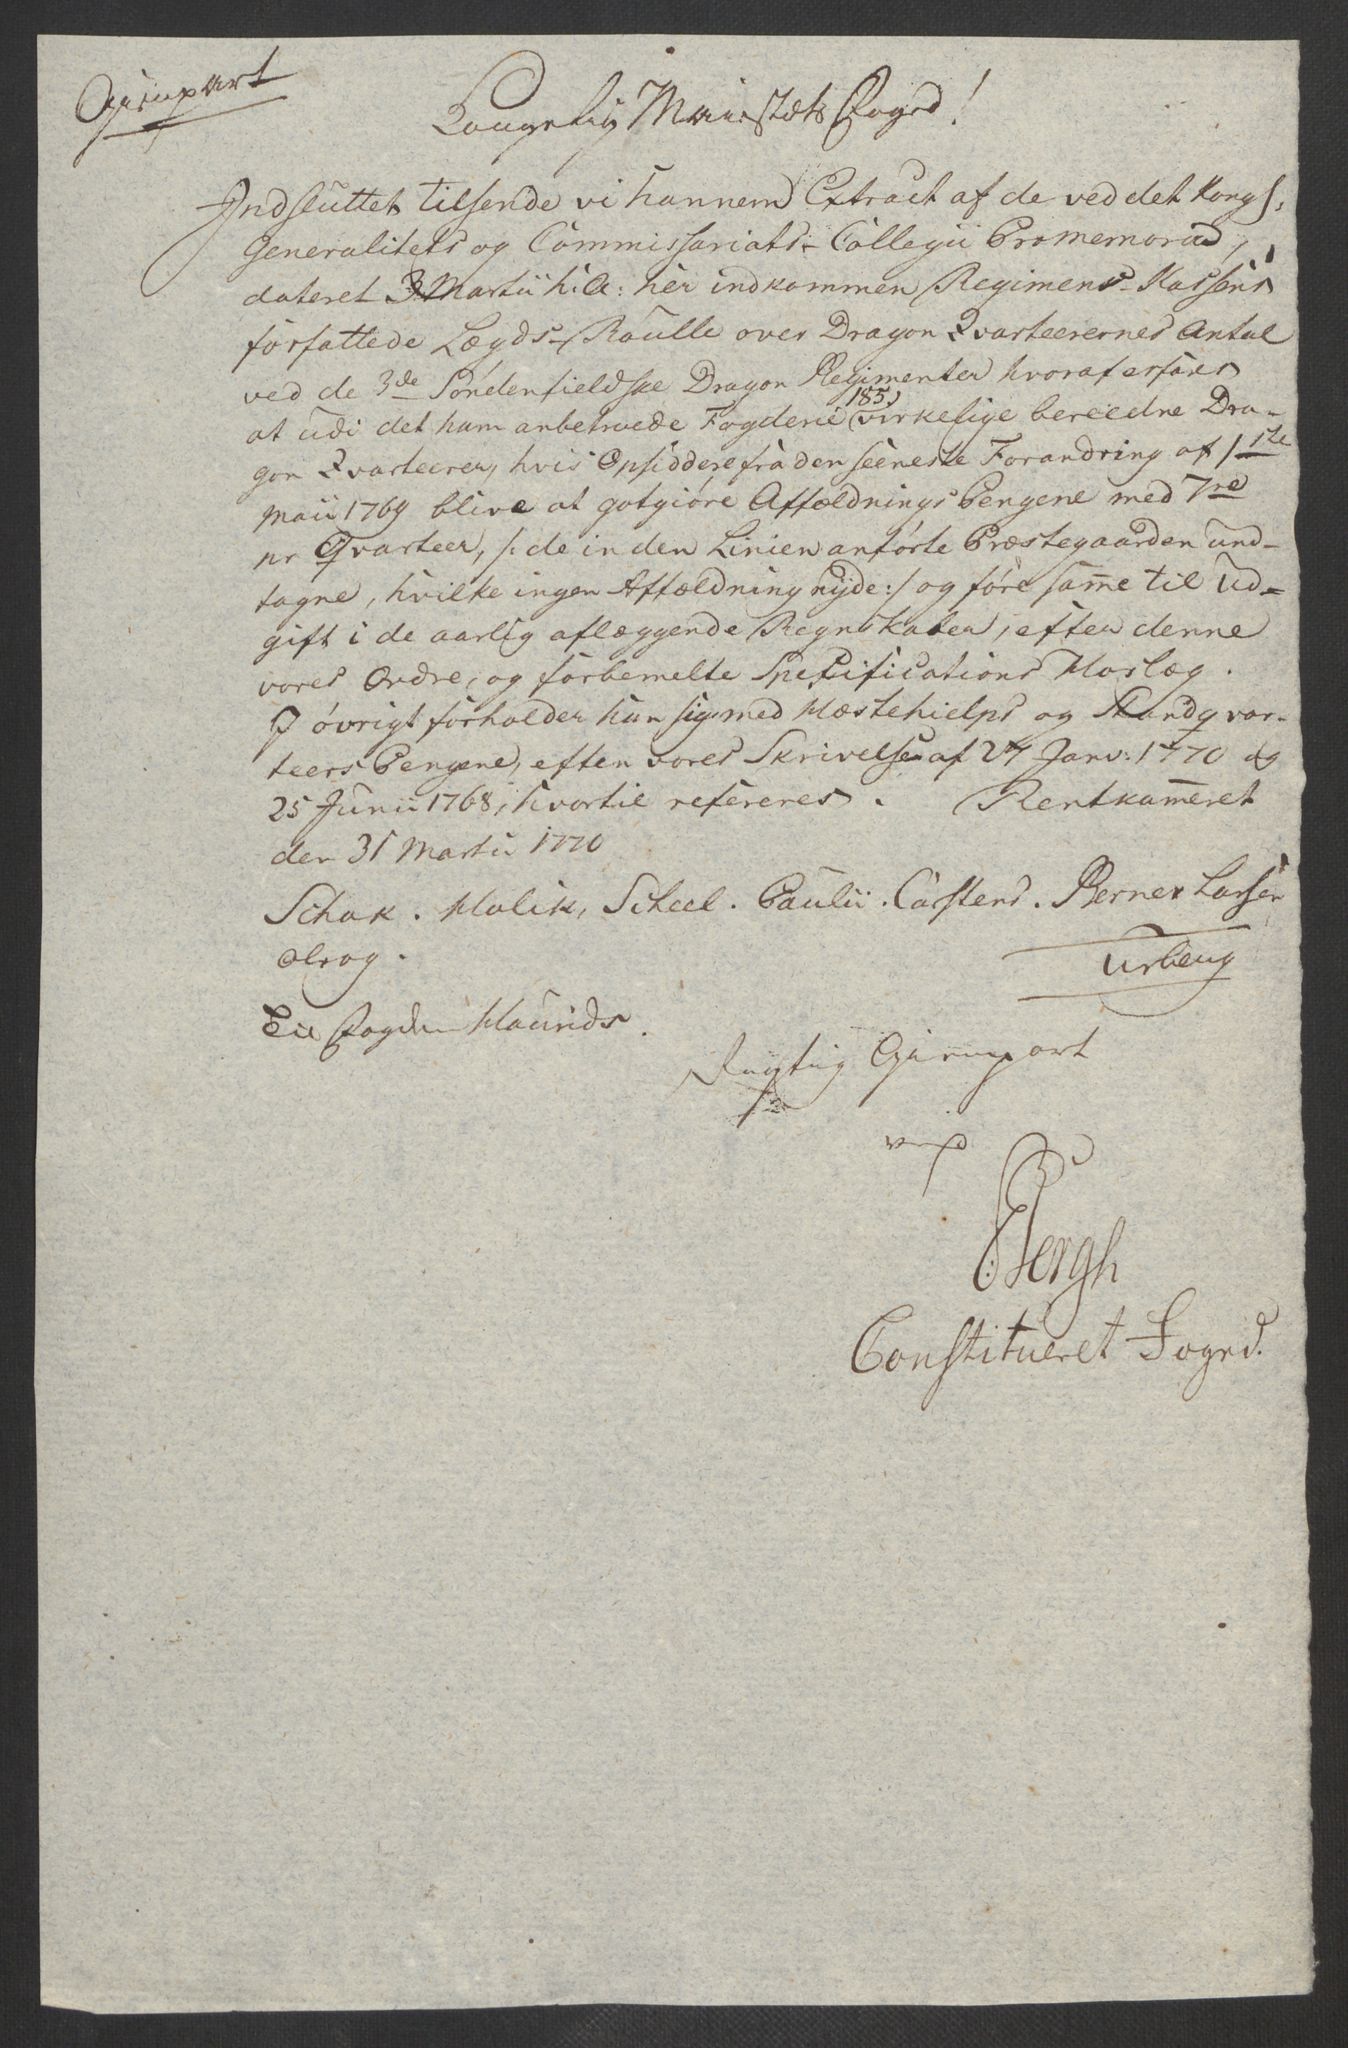 Gienpart
Kongelig Maiestæts Foged!
Indsluttet tilsende vi hannem Extract af de ved det Kongl.
Generalitets og Commissariats-Collegii Promemoria,
dateret 3 Martii h: a: her indkommen Regimens-Kassens
forfattede Lægds-Roulle over Dragon Qvarteerernes Antal
ved de 3de Søndenfieldske Dragon Regimenter hvoraf erfares
at udi det ham anbetroede Fogderie 185 virkelige bereedne Dra-
gon Qvarteerer, hvis Opsiddere fra den seeneste Forandring af 1ste
Maii 1769 blive at gotgiøre Affældnings Pengene med 7rd
pr Qvarteer, /: de in den Linien anførte Præstegaarden und-
tagne, hvilke ingen Affældning nyde :/ og føre sam̄e til Ud-
gift i de aarlig aflæggende Regnskaber, efter denne
vores Ordre, og forbemelte Specifications Horlæg.
I øvrigt forholder han sig med Hæstehielps og Standqvar-
teers Pengene, efter vores Skrivelser af 27 Janv: 1770 og
25 Junii 1768, hvortil refereres. Rentkam̄eret
den 31 Martii 1770
Schak. Holik, Scheel. Paulii. Carstens. Berner Larsen
Olrog.
Urberg
Til Fogden Haurids.
Rigtig Gienpart
Bergh
Constitueret Foged.